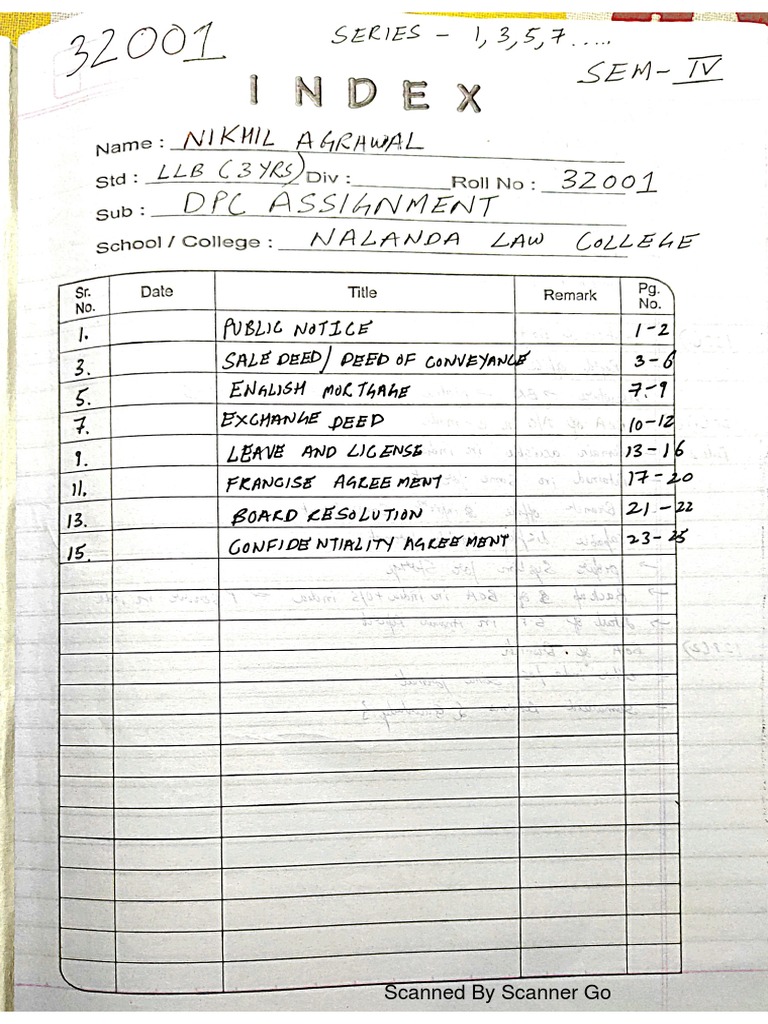 32001
SERIES - 1, 3, 5, 7 .....
SEM - IV
INDEX
Name : NIKHIL AGRAWAL
Std : LLB (3 YRS) Div : Roll No : 32001
Sub : DPC ASSIGNMENT
School / College : NALANDA LAW COLLEGE
Sr. No. Date Title Remark Pg. No.
1. PUBLIC NOTICE 1-2
3. SALE DEED/ DEED OF CONVEYANCE 3-6
5. ENGLISH MORTGAGE 7-9
7. EXCHANGE DEED 10-12
9. LEAVE AND LICENSE 13-16
11. FRANCISE AGREEMENT 17-20
13. BOARD RESOLUTION 21-22
15. CONFIDENTIALITY AGREEMENT 23-25
Scanned By Scanner Go